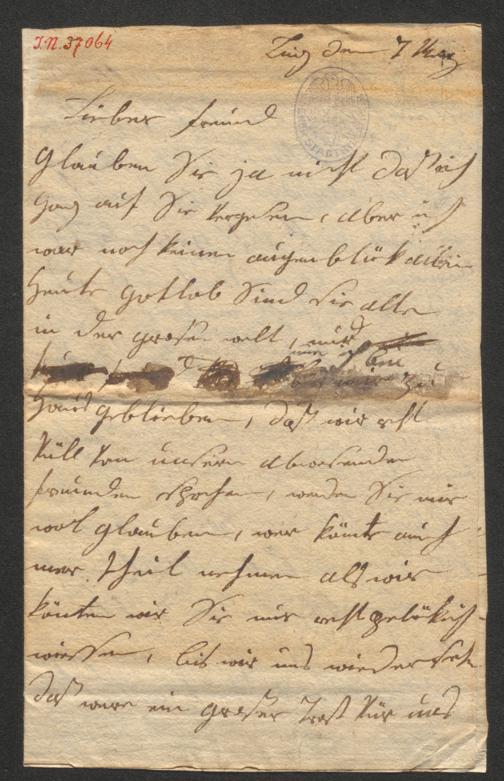 I.N. 37064
den 7
Lieber Freund
Glauben Sie ja nicht daß ich
ganz auf Sie vergeßen, aber ich
war noch keinen augenblick allein
Heute gottlob Sind sie alle
in der großen welt, nur
zu
Haus geblieben, daß wir recht
von unsern abwesenden
freunden sprechen, werden Sie mir
wol glauben, wer könte auch
mer theil nehmen als wir
könten wir Sie nur recht glücklich
wissen, bis wir uns wieder sehen
daß ware ein großer Trost für uns